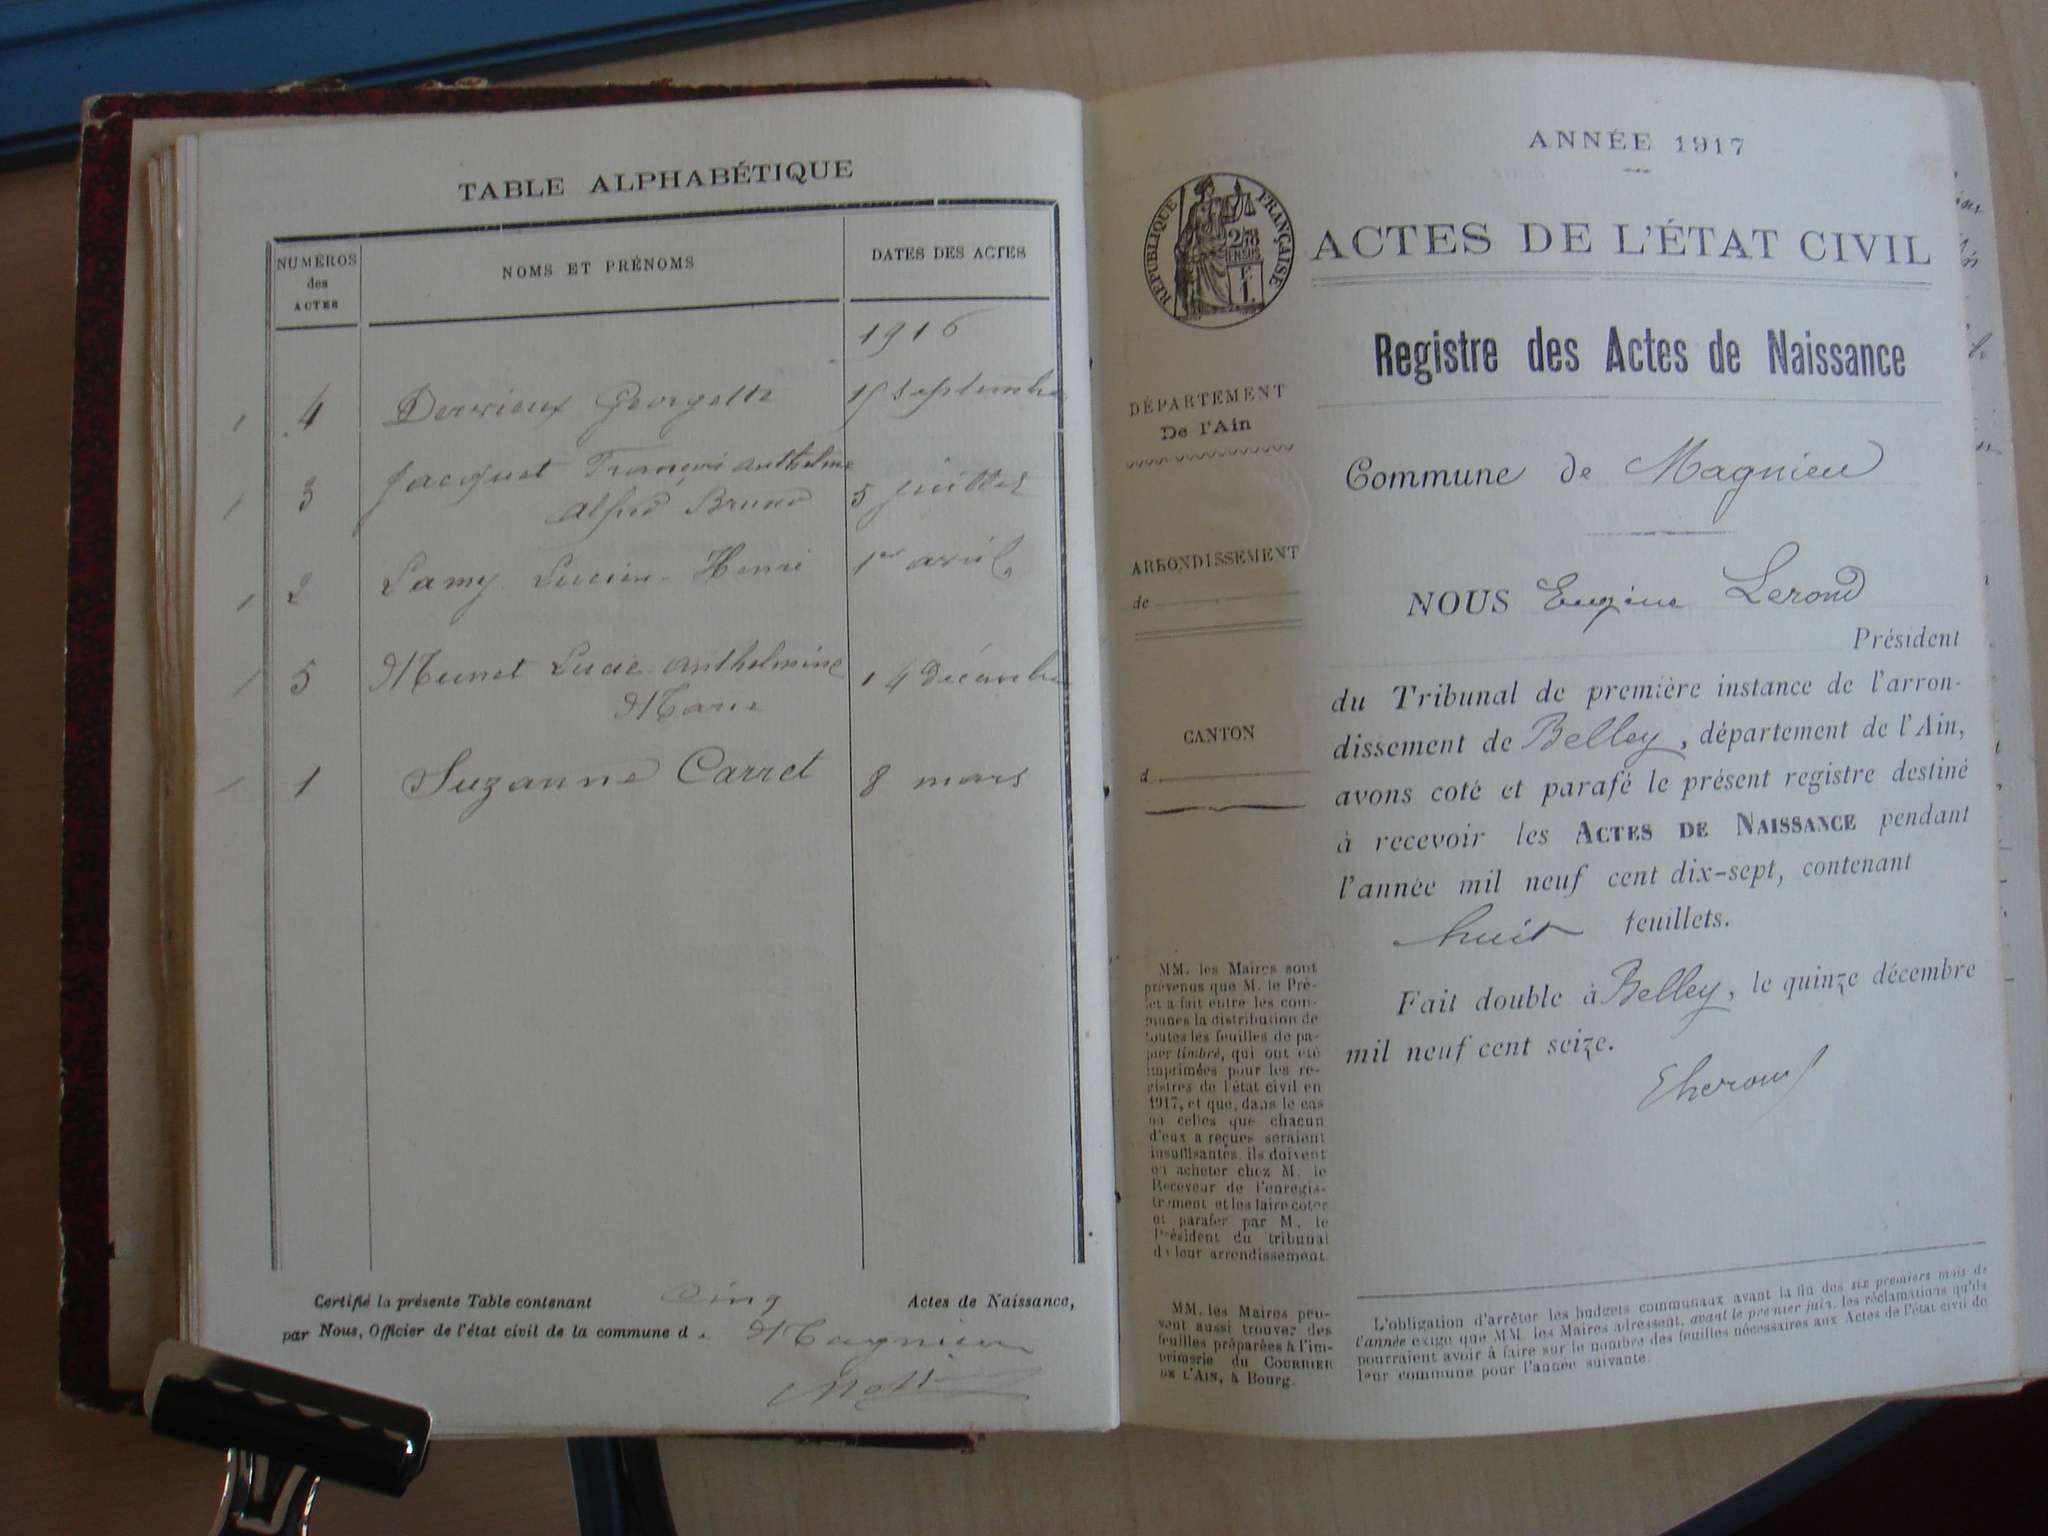 TABLE ALPHABÉTIQUE
NUMÉROS
des
ACTES
NOMS ET PRÉNOMS
DATES DES ACTES
1916
4 Derrieux Georgette 15 septembre
3 Jacquet François Anthelme
Alfred Bruno 5 juillet
2 Lamy Lucien Henri 1er avril
5 Munet Lucie Anthelmine 14 décembre
Marie
1 Suzanne Carret 8 mars
Certifié la présente Table contenant Cinq Actes de Naissance,
par Nous, Officier de l'état civil de la commune de Magnieu
ANNÉE 1917
RÉPUBLIQUE FRANÇAISE
ACTES DE L'ÉTAT CIVIL
Registre des Actes de Naissance
DÉPARTEMENT
De l'Ain
Commune de Magnieu
ARRONDISSEMENT
de
NOUS Eugène Lerond
Président
du Tribunal de première instance de l'arron-
dissement de Belley, département de l'Ain,
avons coté et parafé le présent registre destiné
à recevoir les ACTES DE NAISSANCE pendant
l'année mil neuf cent dix-sept, contenant
huit feuillets.
CANTON
d
Fait double à Belley, le quinze décembre
mil neuf cent seize.
MM. les Maires sont
prévenus que M. le Pré-
fet a fait entre les com-
munes la distribution de
toutes les feuilles de pa-
pier timbré, qui ont été
imprimées pour les re-
gistres de l'état civil en
1917, et que, dans le cas
où celles que chacun
d'eux a reçues seraient
insuffisantes, ils doivent
en acheter chez M. le
Receveur de l'enregis-
trement et les faire coter
et parafer par M. le
Président du tribunal
de leur arrondissement.
MM. les Maires peu-
vent aussi trouver des
feuilles préparées à l'im-
primerie du COURRIER
DE L'AIN, à Bourg.
L'obligation d'arrêter les budgets communaux avant la fin des six premiers mois de
l'année exige que MM. les Maires adressent, avant le premier juin, les réclamations qu'ils
pourraient avoir à faire sur le nombre des feuilles nécessaires aux Actes de l'état civil de
leur commune pour l'année suivante.